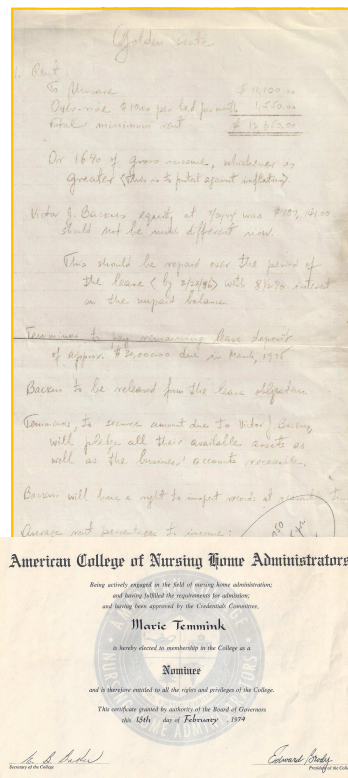 Golden
1. Rent
To
$ 11,100.00
$10.00 per bed per month 1,550.00
Total minimum rent $ 12,650.00
Or 16% of gross revenue, whichever is
greater (this is to protect against inflation).
Victor J. Backus equity at was
should not be much different now.
This should be repaid over the period of
the lease (by 2/28/86) with 8 1/2% interest
on the unpaid balance
Temminks to pay remaining lease deposit
of approx. $20,000.00 due in March, 1975
Backus to be released from the lease obligation
Temminks, to secure amount due to Victor J. Backus,
will pledge all their available assets as
well as the business' accounts receivable.
Backus will have a right to inspect records at
Average rent percentages to income:
American College of Nursing Home Administrators
Being actively engaged in the field of nursing home administration;
and having fulfilled the requirements for admission;
and having been approved by the Credentials Committee,
Marie Temmink
is hereby elected to membership in the College as a
Nominee
and is therefore entitled to all the rights and privileges of the College.
This certificate granted by authority of the Board of Governors
this 15th day of February, 1974
Secretary of the College
Edward Brody
President of the